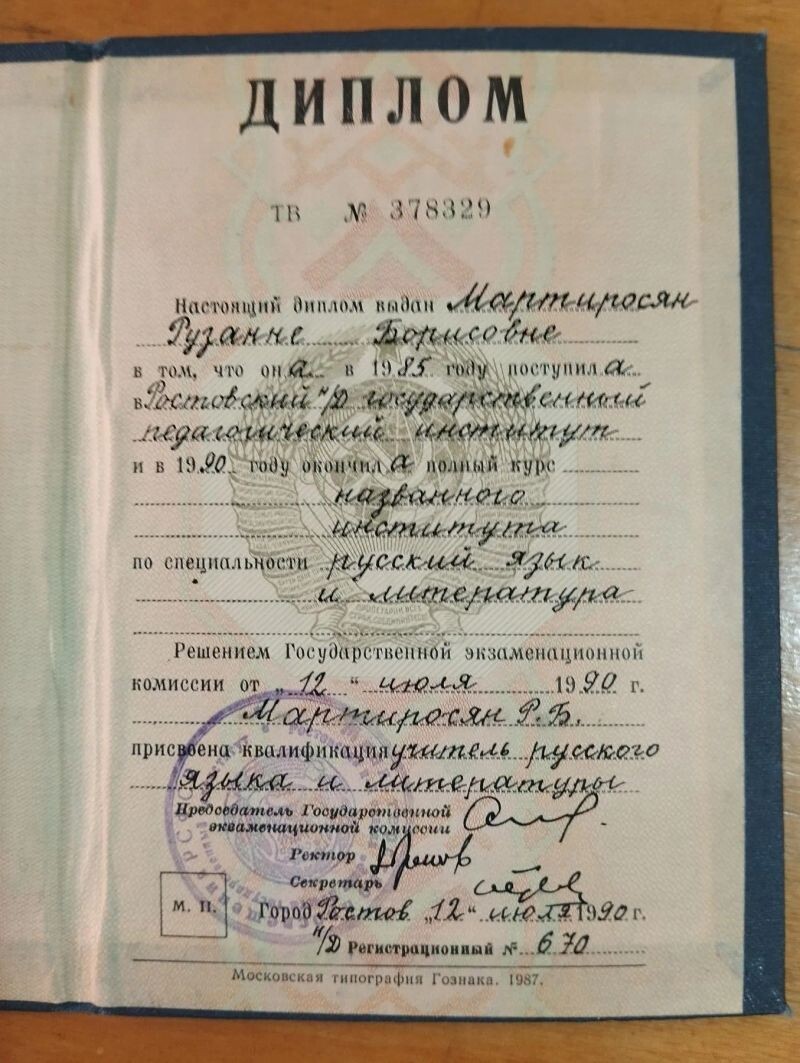 ДИПЛОМ
ТВ № 378329
Настоящий диплом выдан Мартиросян
Рузанне Борисовне
в том, что она в 1985 году поступила
в Ростовский н/Д государственный
педагогический институт
и в 1990 году окончила полный курс
названного
института
по специальности русский язык
и литература
Решением Государственной экзаменационной
комиссии от „12" июля 1990 г.
Мартиросян Р.Б.
присвоена квалификация учитель русского
языка и литературы
Председатель Государственной
экзаменационной комиссии
Ректор
Секретарь
М. П.
Город Ростов „12" июля 1990 г.
н/Д Регистрационный № 670
Московская типография Гознака. 1987.